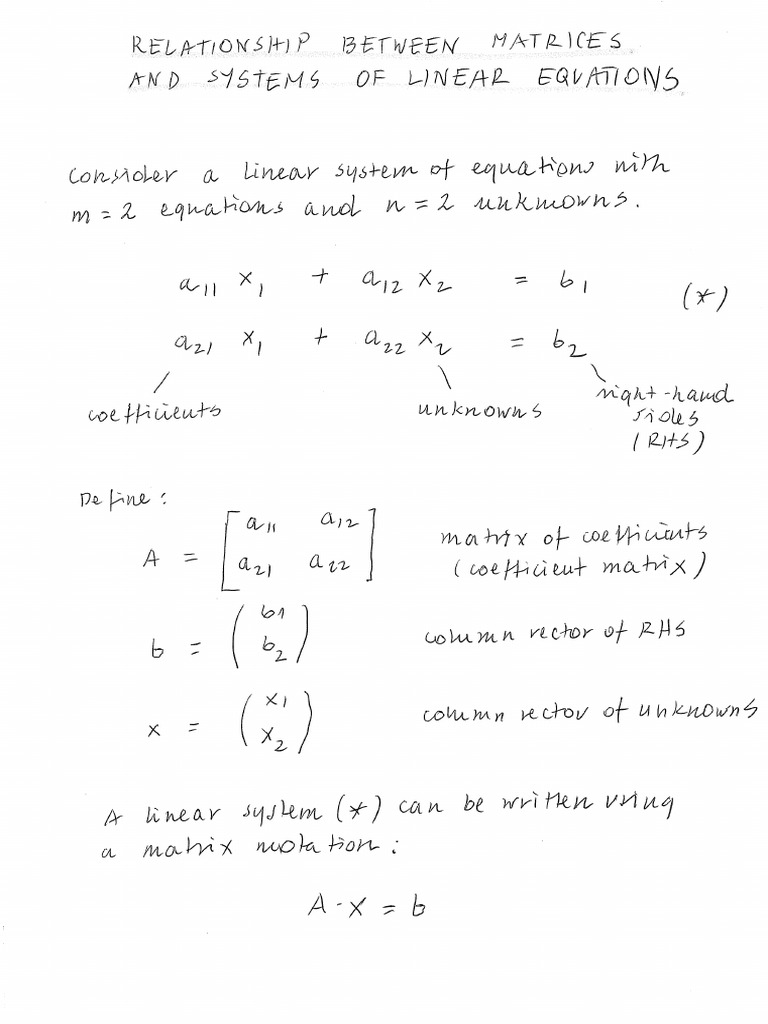 RELATIONSHIP BETWEEN MATRICES
AND SYSTEMS OF LINEAR EQUATIONS
Consider a linear system of equations with
m = 2 equations and n = 2 unknowns.
a11 x1 + a12 x2 = b1 (*)
a21 x1 + a22 x2 = b2
coefficients unknowns right-hand
sides
(RHS)
Define:
A = [a11 a12
a21 a22] matrix of coefficients
(coefficient matrix)
b = (b1
b2) column vector of RHS
x = (x1
x2) column vector of unknowns
A linear system (*) can be written using
a matrix notation:
A · x = b